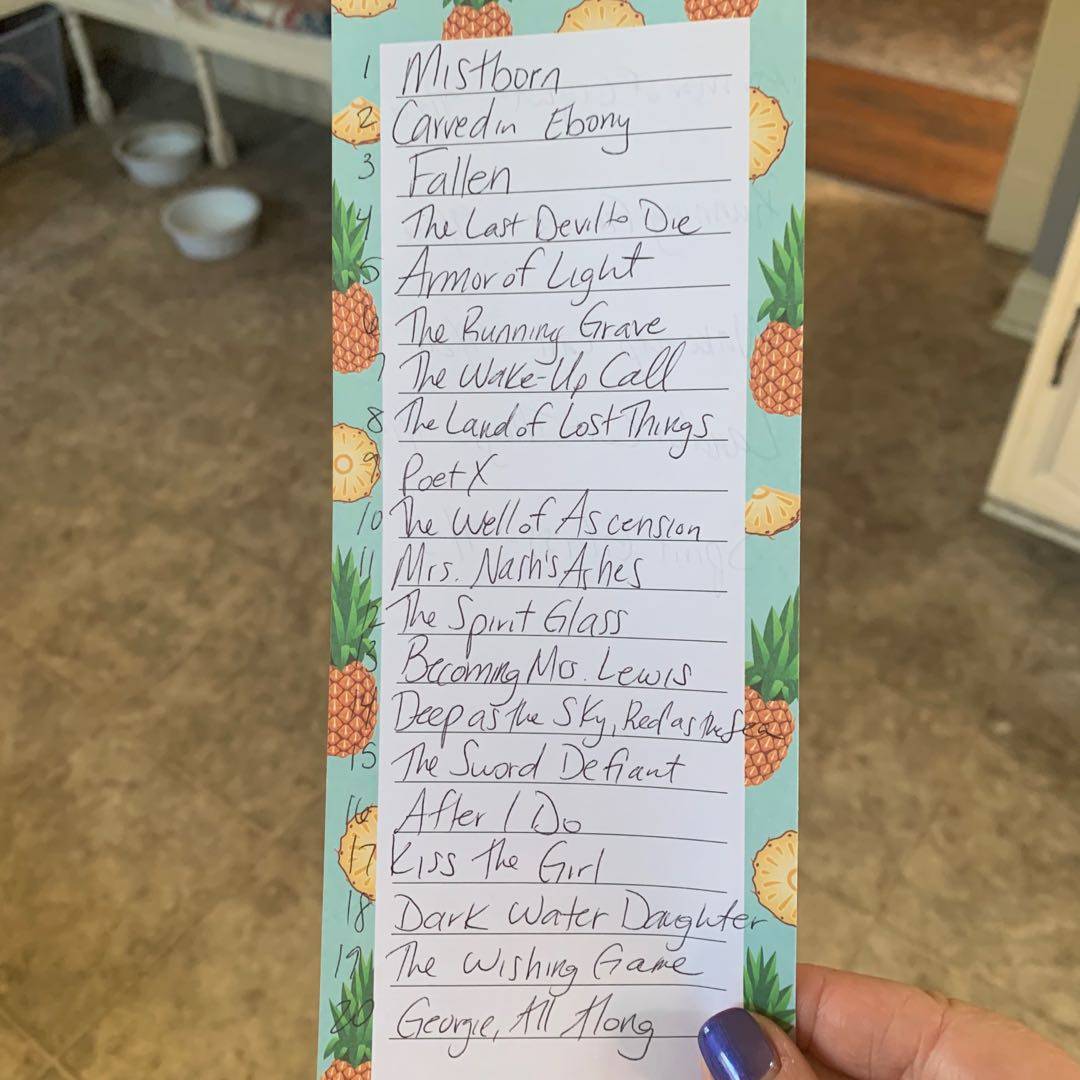 1 Mistborn
2 Carved in Ebony
3 Fallen
4 The Last Devil to Die
5 Armor of Light
6 The Running Grave
7 The Wake-Up Call
8 The Land of Lost Things
9 Poet X
10 The Well of Ascension
11 Mrs. Nash's Ashes
12 The Spirit Glass
13 Becoming Mrs. Lewis
14 Deep as the Sky, Red as the Sea
15 The Sword Defiant
16 After I Do
17 Kiss the Girl
18 Dark Water Daughter
19 The Wishing Game
20 Georgie, All Along